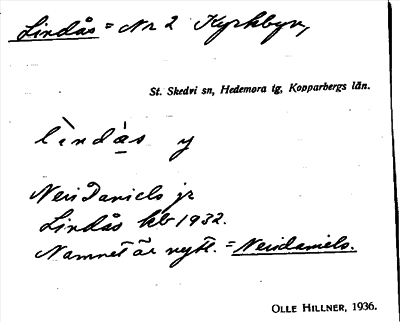 Lindås = Nr 2 Kyrkbyn,
St. Skedvi sn, Hedemora tg, Kopparbergs län.
lìndås y
Ners Daniels jr
Lindås kb 1932.
Namnet är nytt. = Nersdaniels.
OLLE HILLNER, 1936.